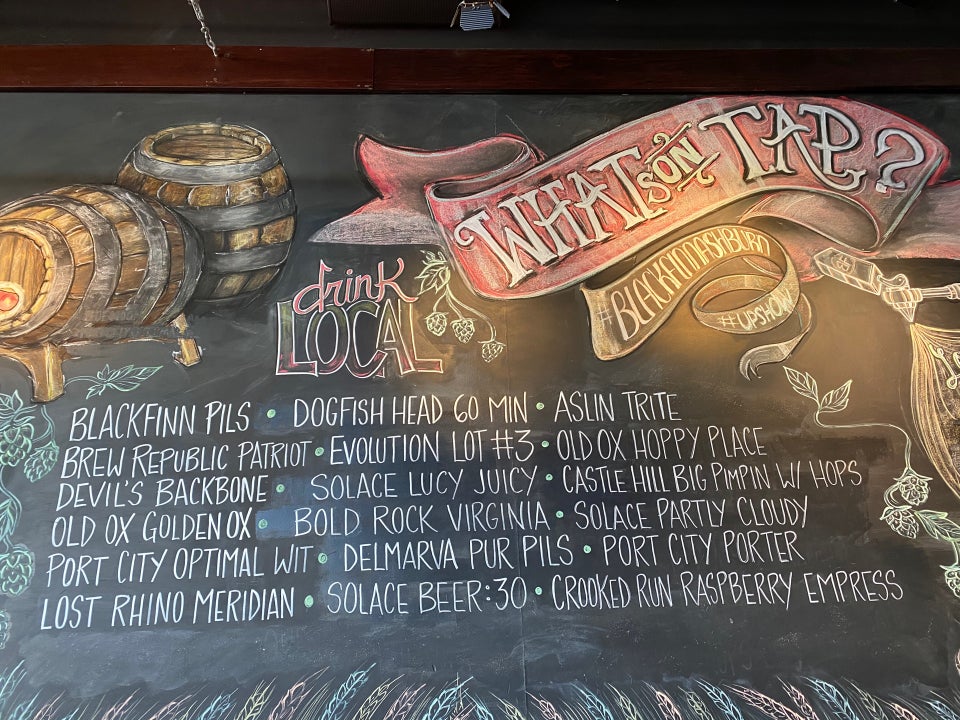 WHAT'S ON TAP?
#BLACKFINNASHBURN
#UPSHOW
drink
LOCAL
BLACKFINN PILS • DOGFISH HEAD 60 MIN • ASLIN TRITE
BREW REPUBLIC PATRIOT • EVOLUTION LOT #3 • OLD OX HOPPY PLACE
DEVIL'S BACKBONE • SOLACE LUCY JUICY • CASTLE HILL BIG PIMPIN W/ HOPS
OLD OX GOLDEN OX • BOLD ROCK VIRGINIA • SOLACE PARTLY CLOUDY
PORT CITY OPTIMAL WIT • DELMARVA PUR PILS • PORT CITY PORTER
LOST RHINO MERIDIAN • SOLACE BEER:30 • CROOKED RUN RASPBERRY EMPRESS